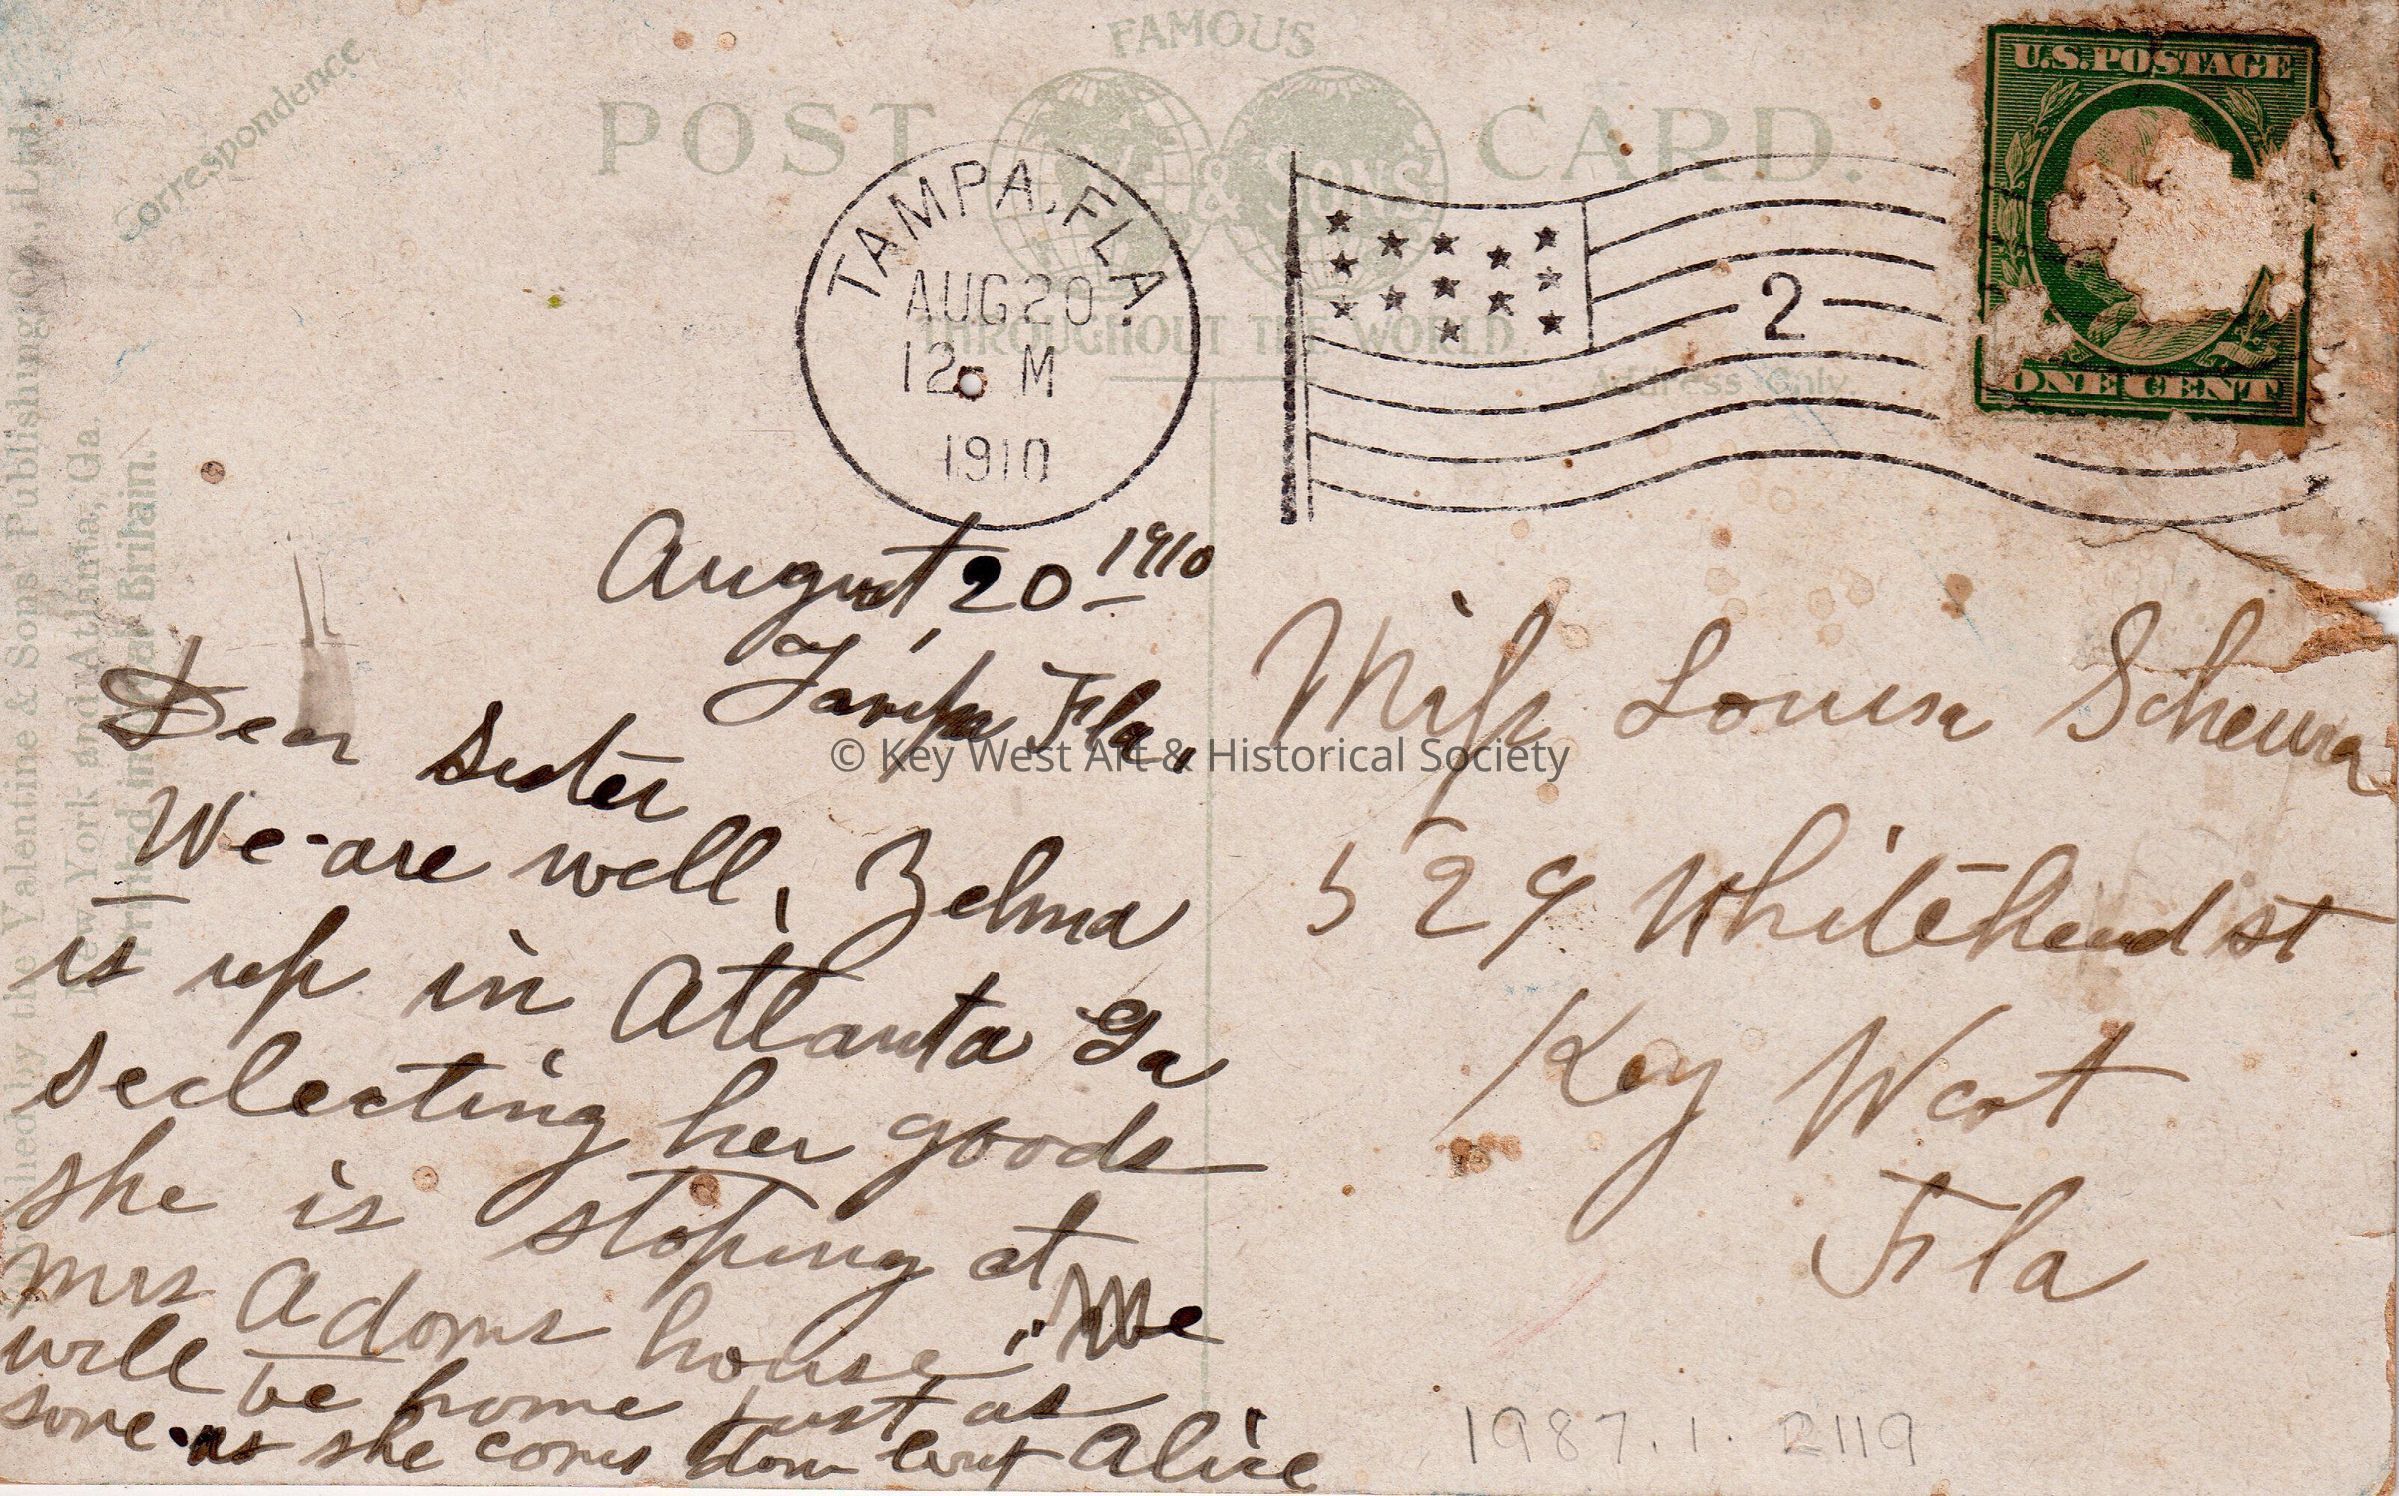 FAMOUS
POST CARD.
& SONS'
THROUGHOUT THE WORLD
Correspondence
Address Only
U.S. POSTAGE
ONE CENT
TAMPA, FLA.
AUG 20
12 M
1910
2
August 20 1910
Tampa Fla,
Dear Sister
We are well, Zelma
is up in Atlanta Ga
seclecting her goods
she is stoping at
Mrs Adoms house. We
will be home just as
sone as she coms down
Alice
Miss Louisa
529 Whitehead st
Key West
Fla
1987.1.2119
© Key West Art & Historical Society
by the Valentine & Sons' Publishing Co., Ltd.
New York and Atlanta, Ga.
Printed in Great Britain.